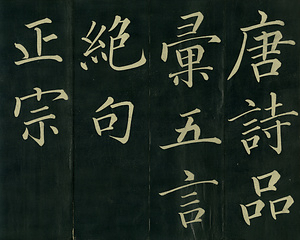 唐詩品
彙五言
絕句
正宗